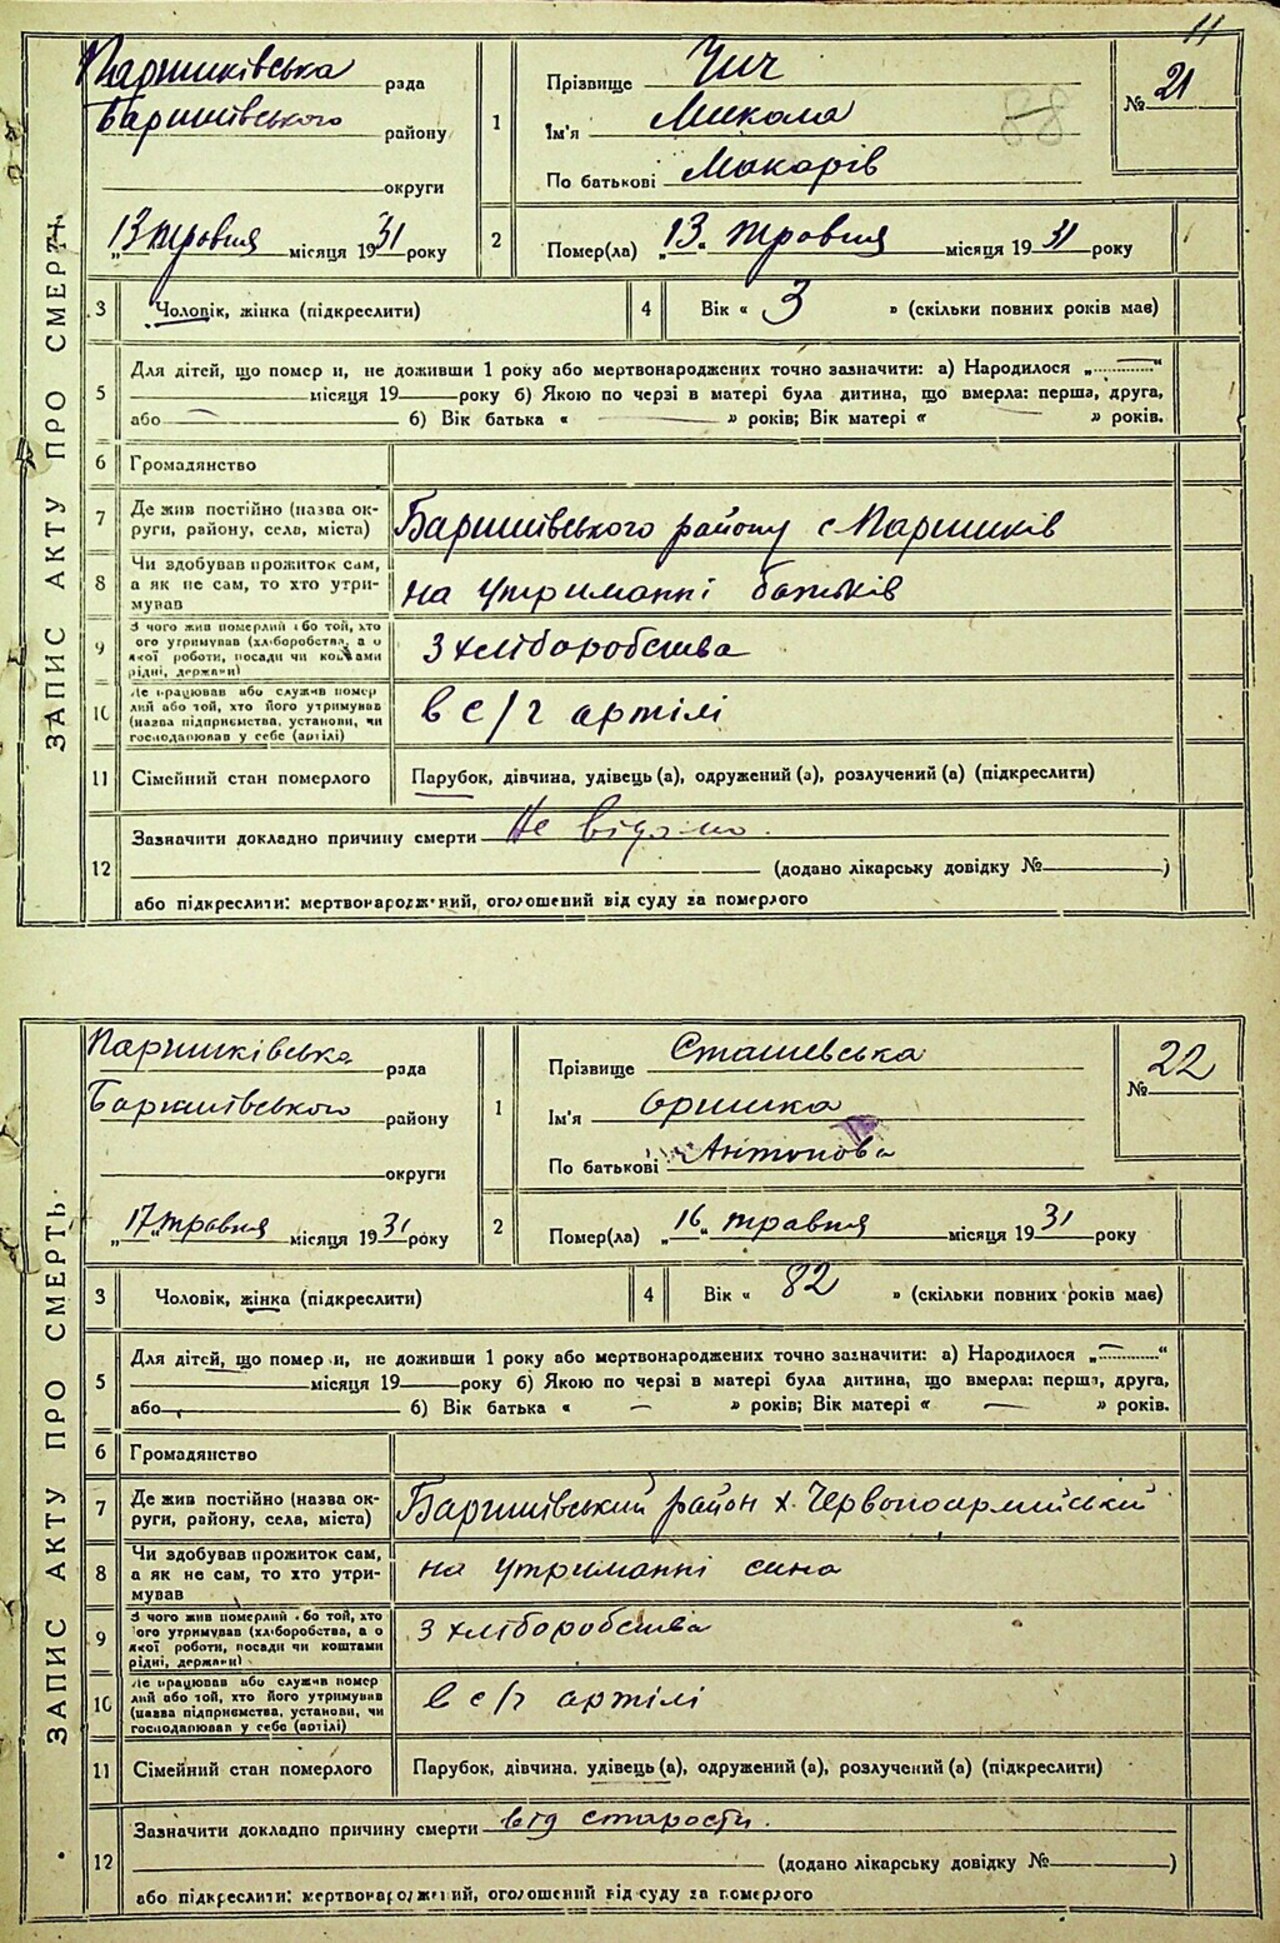 11
ЗАПИС АКТУ ПРО СМЕРТЬ
Паришківська рада
Баришівського району
округи
„13" травня місяця 1931 року
1
Прізвище Чич
Ім'я Микола
По батькові Макарів
88
№ 21
2 Помер(ла) „13" травня місяця 1931 року
3 Чоловік, жінка (підкреслити)
4 Вік « 3 » (скільки повних років має)
5 Для дітей, що помер и, не доживши 1 року або мертвонароджених точно зазначити: а) Народилося „ "
місяця 19 року б) Якою по черзі в матері була дитина, що вмерла: перша, друга,
або б) Вік батька « — » років; Вік матері « — » років.
6 Громадянство
7 Де жив постійно (назва ок-
руги, району, села, міста) Баришівського району с Паришків
8 Чи здобував прожиток сам,
а як не сам, то хто утри-
мував на утриманні батьків
9 З чого жив померлий або той, хто
його утримував (хліборобства, а о
якої роботи, посади чи коштами
рідні, держави) З хліборобства
10 Де працював або служив помер
лий або той, хто його утримував
(назва підприємства, установи, чи
господарював у себе (артілі) в с/г артілі
11 Сімейний стан померлого Парубок, дівчина, удівець (а), одружений (а), розлучений (а) (підкреслити)
12 Зазначити докладно причину смерти Не відомо.
(додано лікарську довідку № )
або підкреслити: мертвонароджений, оголошений від суду за померлого
ЗАПИС АКТУ ПРО СМЕРТЬ
Паришківська рада
Баришівського району
округи
„17" травня місяця 1931 року
1
Прізвище Сташевська
Ім'я Оришка
По батькові Антонова
№ 22
2 Помер(ла) „16" травня місяця 1931 року
3 Чоловік, жінка (підкреслити)
4 Вік « 82 » (скільки повних років має)
5 Для дітей, що помер и, не доживши 1 року або мертвонароджених точно зазначити: а) Народилося „ "
місяця 19 року б) Якою по черзі в матері була дитина, що вмерла: перша, друга,
або б) Вік батька « — » років; Вік матері « — » років.
6 Громадянство
7 Де жив постійно (назва ок-
руги, району, села, міста) Баришівський район х. Червоноармійській
8 Чи здобував прожиток сам,
а як не сам, то хто утри-
мував на утриманні сина
9 З чого жив померлий або той, хто
його утримував (хліборобства, а о
якої роботи, посади чи коштами
рідні, держави) З хліборобства
10 Де працював або служив помер
лий або той, хто його утримував
(назва підприємства, установи, чи
господарював у себе (артілі) в с/г артілі
11 Сімейний стан померлого Парубок, дівчина, удівець (а), одружений (а), розлучений (а) (підкреслити)
12 Зазначити докладно причину смерти від старости.
(додано лікарську довідку № )
або підкреслити: мертвонароджений, оголошений від суду за померлого